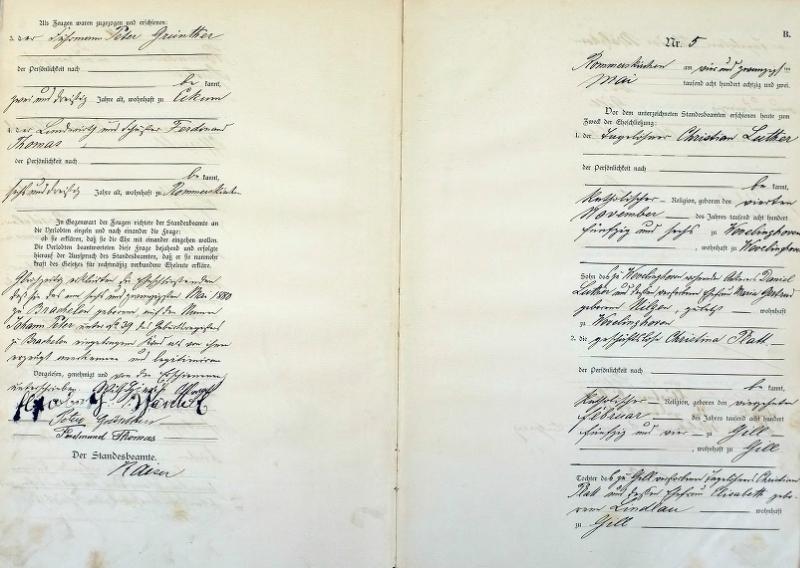 B.
Nr. 5
Rommerskirchen am vier und zwanzigsten
Mai tausend acht hundert achtzig und zwei.
Vor dem unterzeichneten Standesbeamten erschienen heute zum
Zweck der Eheschließung:
1. der Tagelöhner Christian Luther
der Persönlichkeit nach
be kannt,
katholischer Religion, geboren den vierten
November des Jahres tausend acht hundert
fünfzig und sechs zu Wevelinghoven
, wohnhaft zu Wevelinghoven
Sohn des zu Wevelinghoven wohnenden Ackerers Daniel
Luther und dessen verstorbenen Ehefrau Maria Gertrud
geborene Hilger, zuletzt wohnhaft
zu Wevelinghoven
2. die geschäftslose Christina Platt
der Persönlichkeit nach
be kannt,
katholischer Religion, geboren den vierzehnten
Februar des Jahres tausend acht hundert
fünfzig und vier zu Gill
, wohnhaft zu Gill
Tochter des zu Gill verstorbenen Tagelöhners Christian
Platt und dessen Ehefrau Elisabeth gebo-
rene Lindlau wohnhaft
zu Gill
Als Zeugen waren zugezogen und erschienen:
3. der Fuhrmann Peter Grünther
der Persönlichkeit nach
be kannt,
zwei und dreißig Jahre alt, wohnhaft zu Eckum
4. der Landwirth und Schäfer Ferdinand
Thomas
der Persönlichkeit nach
be kannt,
sechs und dreißig Jahre alt, wohnhaft zu Rommerskirchen
In Gegenwart der Zeugen richtete der Standesbeamte an
die Verlobten einzeln und nach einander die Frage:
ob sie erklären, daß sie die Ehe mit einander eingehen wollen.
Die Verlobten beantworteten diese Frage bejahend und erfolgte
hierauf der Ausspruch des Standesbeamten, daß er sie nunmehr
kraft des Gesetzes für rechtmäßig verbundene Eheleute erkläre.
Gleichzeitig erklärten die Eheschließenden
daß sie das am sechs und zwanzigsten Mai 1880
zu Brachelen geborene, auf den Namen
Johann Peter unter No 39 des Geburtsregisters
zu Brachelen eingetragene Kind als von ihnen
erzeugt anerkennen und legitimiren
Vorgelesen, genehmigt und von den Erschienenen
unterschrieben.
Peter Grünther
Ferdinand Thomas
Der Standesbeamte.
Kaiser